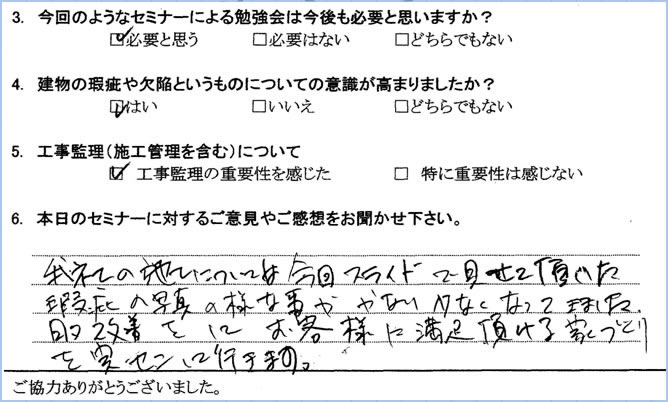 3. 今回のようなセミナーによる勉強会は今後も必要と思いますか？
☑必要と思う □必要はない □どちらでもない
4. 建物の瑕疵や欠陥というものについての意識が高まりましたか？
☑はい □いいえ □どちらでもない
5. 工事監理（施工管理を含む）について
☑ 工事監理の重要性を感じた □ 特に重要性は感じない
6. 本日のセミナーに対するご意見やご感想をお聞かせ下さい。
我社の については今回スライドで見せて頂いた
瑕疵の写真の様な事が なくなってきました。
日々改善をしてお客様に満足頂ける家づくり
を 行きます。
ご協力ありがとうございました。